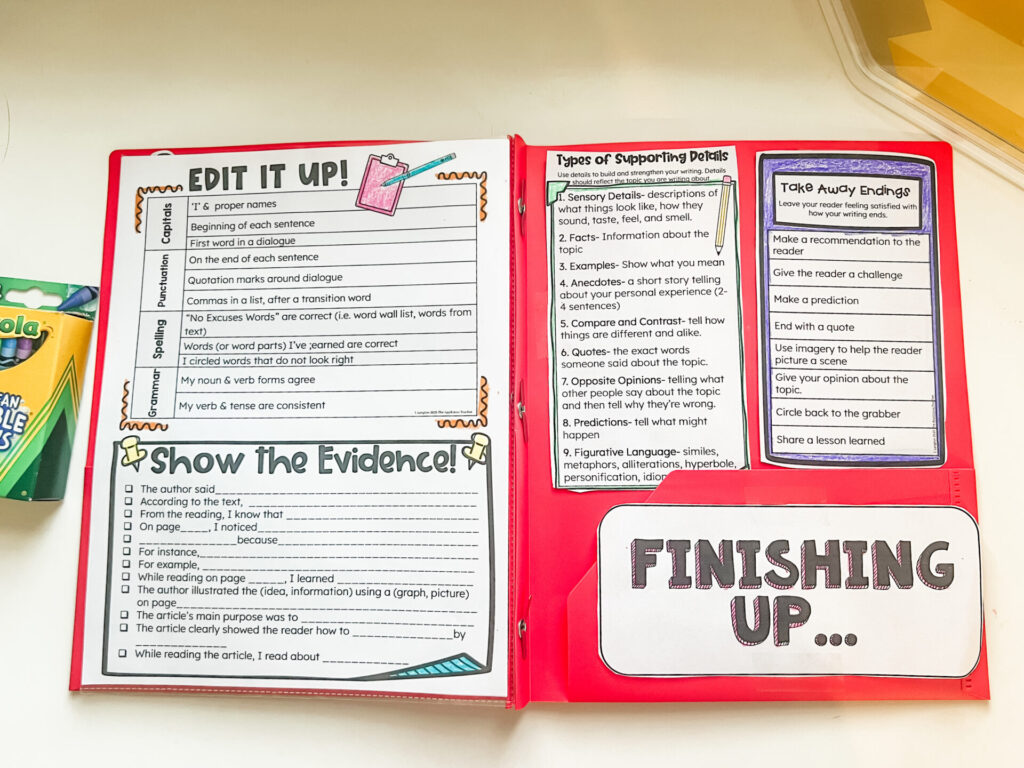 EDIT IT UP!
Capitals
'I' & proper names
Beginning of each sentence
First word in a dialogue
Punctuation
On the end of each sentence
Quotation marks around dialogue
Commas in a list, after a transition word
Spelling
"No Excuses Words" are correct (i.e. word wall list, words from
text)
Words (or word parts) I've ;earned are correct
I circled words that do not look right
Grammar
My noun & verb forms agree
My verb & tense are consistent
Show the Evidence!
The author said
According to the text,
From the reading, I know that
On page____, I noticed
____because____
For instance,
For example,
While reading on page ____, I learned ____
The author illustrated the (idea, information) using a (graph, picture)
on page____
The article's main purpose was to ____
The article clearly showed the reader how to ____by
____
While reading the article, I read about ____
Types of Supporting Details
Use details to build and strengthen your writing. Details
should reflect the topic you are writing about.
1. Sensory Details- descriptions of
what things look like, how they
sound, taste, feel, and smell.
2. Facts- Information about the
topic
3. Examples- Show what you mean
4. Anecdotes- a short story telling
about your personal experience (2-
4 sentences)
5. Compare and Contrast- tell how
things are different and alike.
6. Quotes- the exact words
someone said about the topic.
7. Opposite Opinions- telling what
other people say about the topic
and then tell why they're wrong.
8. Predictions- tell what might
happen
9. Figurative Language- similes,
metaphors, alliterations, hyperbole,
personification,
Take Away Endings
Leave your reader feeling satisfied with
how your writing ends.
Make a recommendation to the
reader
Give the reader a challenge
Make a prediction
End with a quote
Use imagery to help the reader
picture a scene
Give your opinion about the
topic.
Circle back to the grabber
Share a lesson learned
FINISHING
UP...